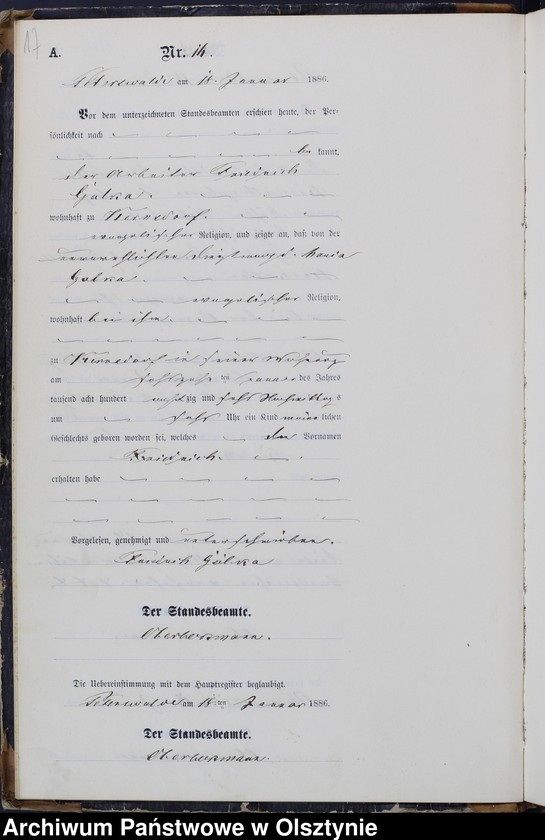 17
A.
Nr. 14.
Peterswalde am 18. Januar 1886.
Vor dem unterzeichneten Standesbeamten erschien heute, der Per-
sönlichkeit nach
be kannt,
der Arbeiter Friedrich
Galka.
wohnhaft zu
evangelischer Religion, und zeigte an, daß von der
Maria
Galka.
evangelischer Religion,
wohnhaft bei ihm.
zu in seiner Wohnung
am ten Januar des Jahres
tausend acht hundert achtzig und sechs Nachmittags
um sechs Uhr ein Kind männlichen
Geschlechts geboren worden sei, welches den Vornamen
Friedrich.
erhalten habe
Vorgelesen, genehmigt und unterschrieben.
Friedrich Galka
Der Standesbeamte.
Die Uebereinstimmung mit dem Hauptregister beglaubigt.
Peterswalde am 18.ten Januar 1886.
Der Standesbeamte.
Archiwum Państwowe w Olsztynie